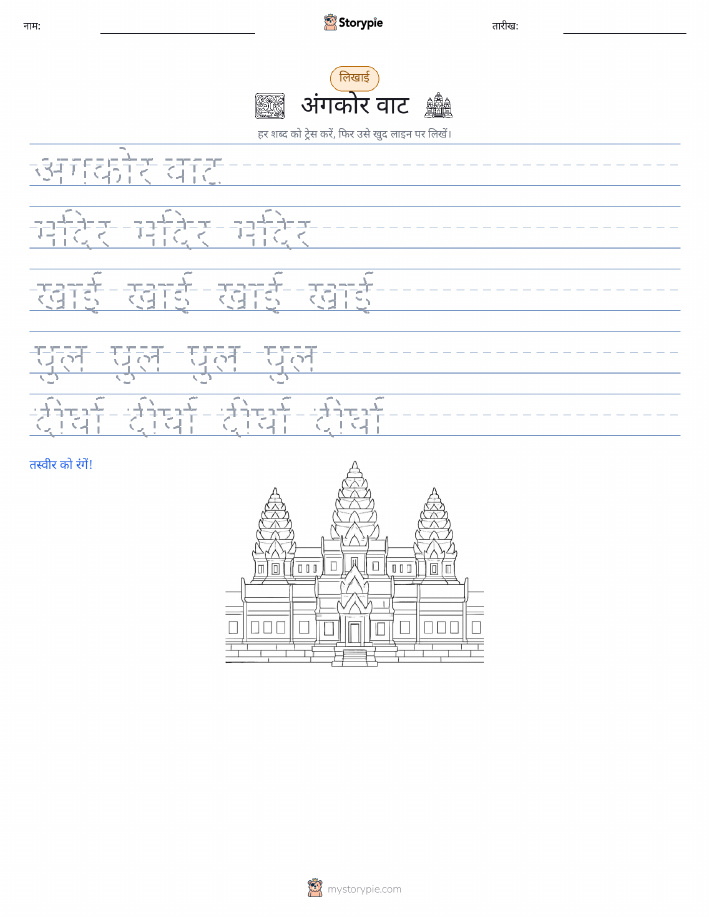 नाम:
Storypie
तारीख:
लिखाई
अंगकोर वाट
हर शब्द को ट्रेस करें, फिर उसे खुद लाइन पर लिखें।
अंगकोर वाट
मंदिर मंदिर मंदिर
खाई खाई खाई खाई
पुल पुल पुल पुल
दीर्घा दीर्घा दीर्घा दीर्घा
तस्वीर को रंगें!
mystorypie.com